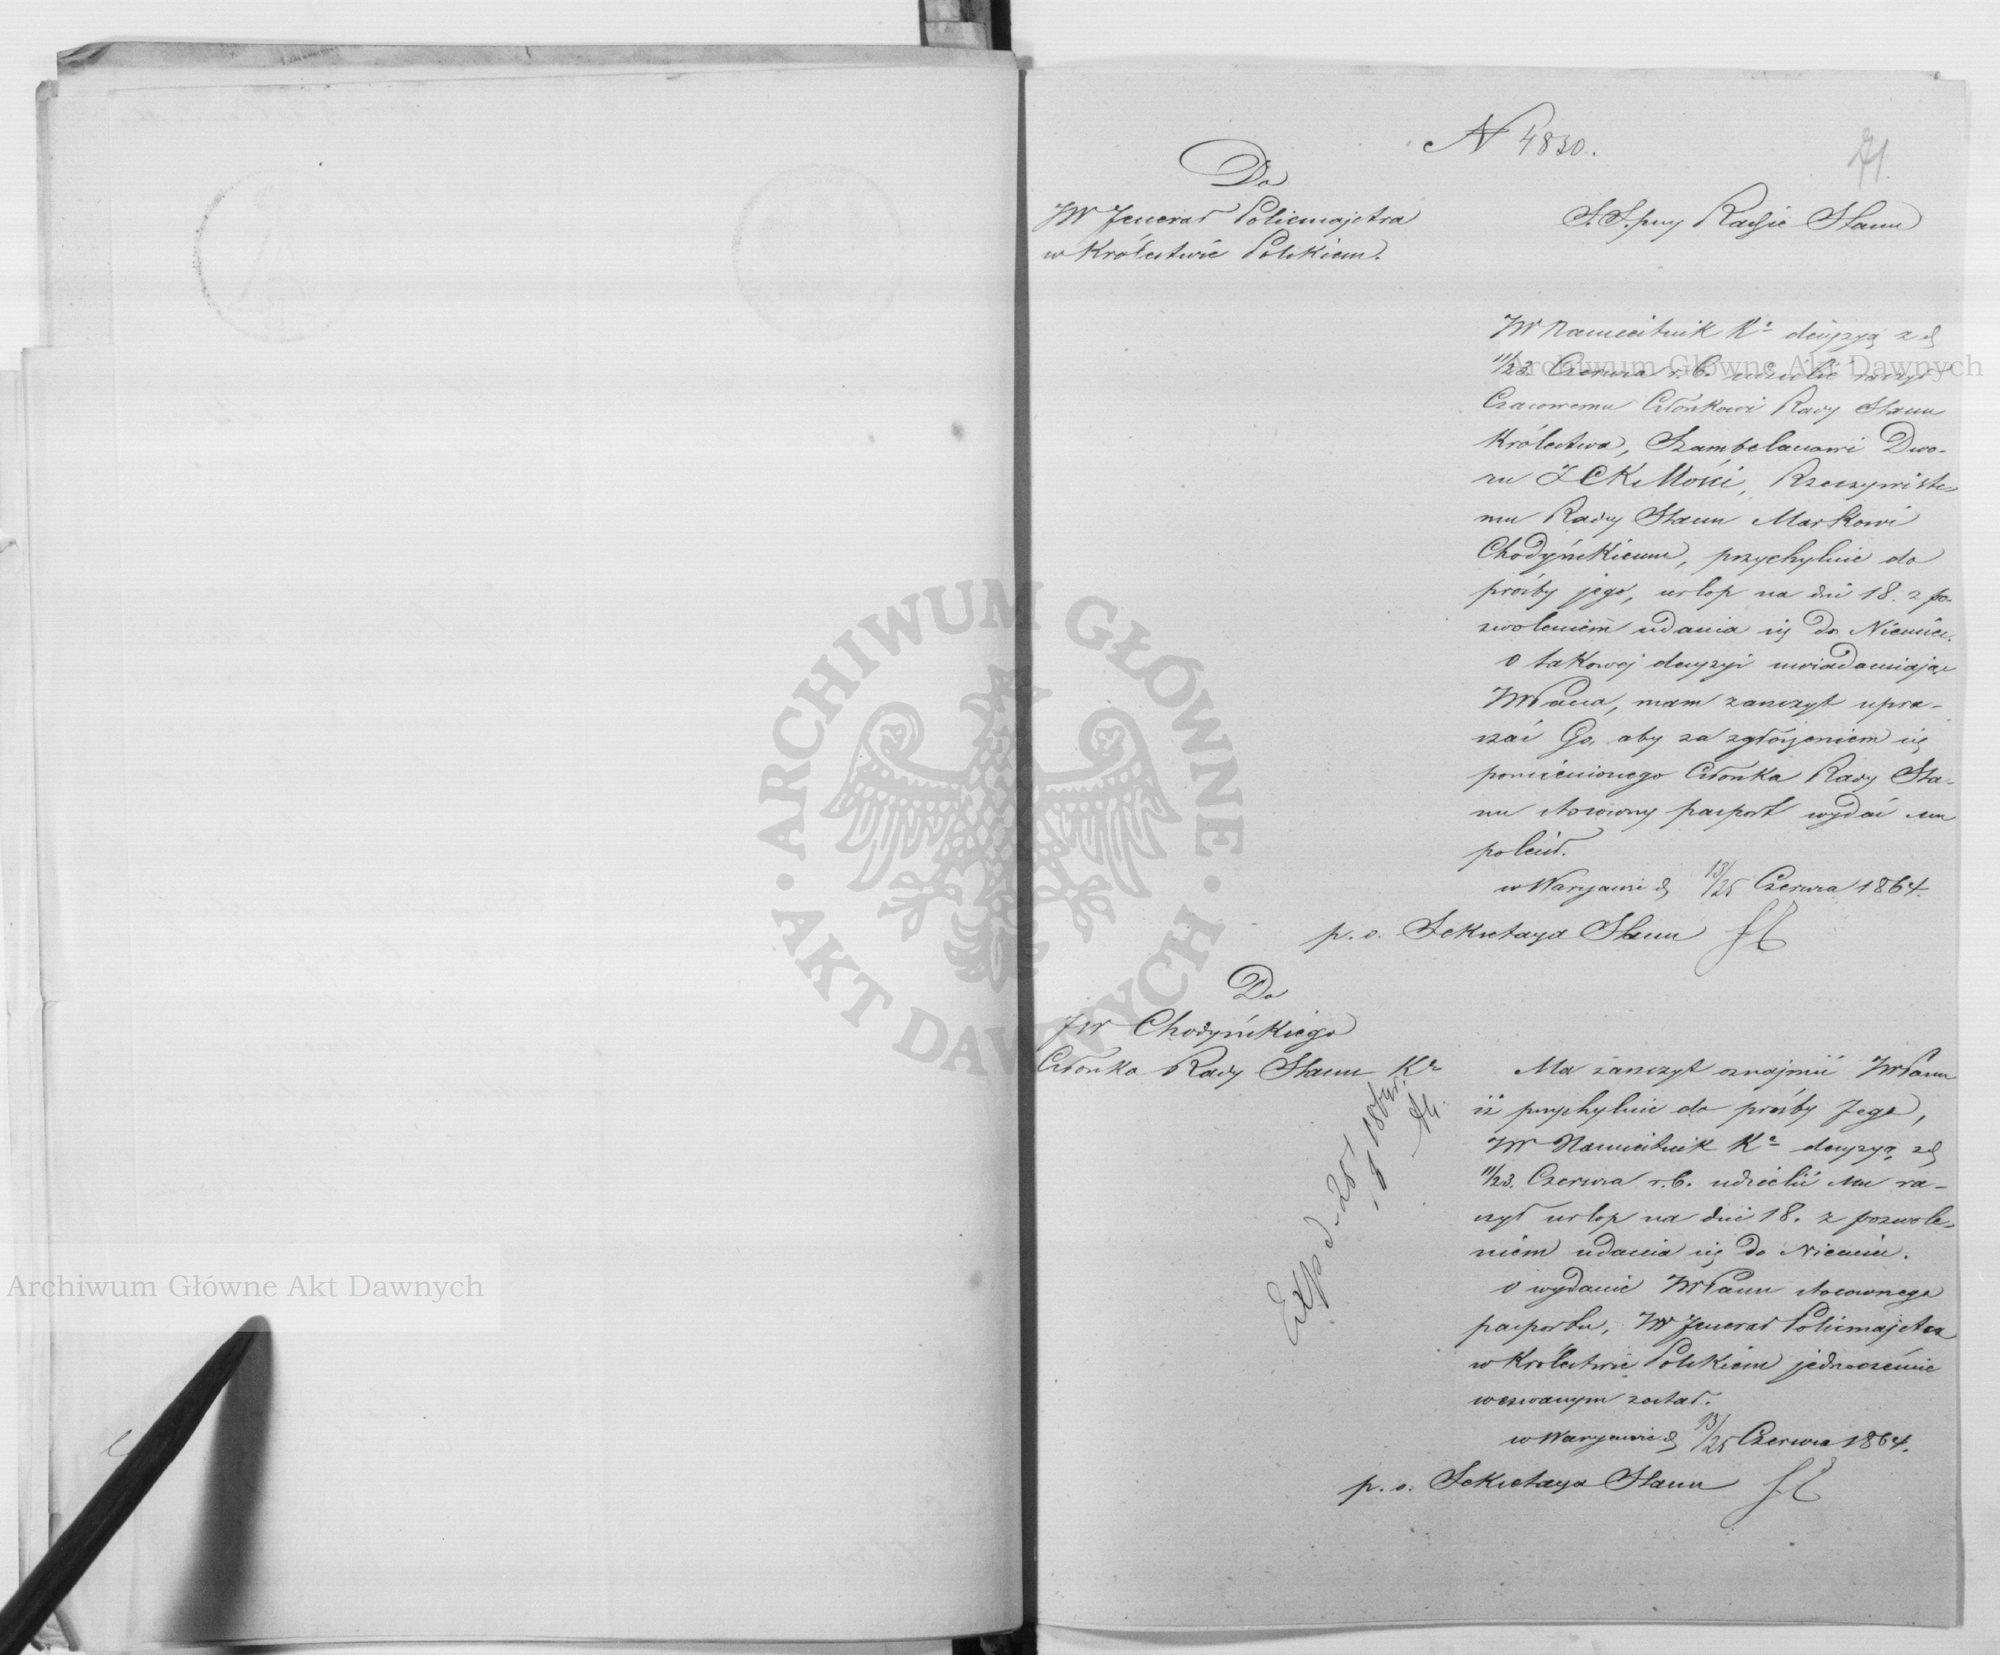 N 4830.
71.
Do
JW Jenerał Policmajstra
w Królestwie Polskiem.
S.S. przy Radzie Stanu
JW Namiestnik Kr decyzyą z d
11/23. Czerwca r.b. udzielić raczył
Czasowemu Członkowi Rady Stanu
Królestwa, Szambelanowi Dwo-
ru JCK Mości, Rzeczywiste-
mu Radcy Stanu Markowi
Chodyńskiemu, przychylnie do
prośby jego, urlop na dni 18. z po-
zwoleniem udania się do Niemiec.
O takowej decyzyi uwiadamiając
JWPana, mam zaszczyt upra-
szać Go, aby za zgłoszeniem się
pomienionego Członka Rady Sta-
nu stosowny pasport wydać mu
polecił.
w Warszawie d 13/25 Czerwca 1864.
p. o. Sekretarza Stanu
Do
JW Chodyńskiego
Członka Rady Stanu Kr
Exp d. 25/6 1864 r.
Ma zaszczyt oznajmić JWPanu
iż przychylnie do prośby Jego,
JW Namiestnik Kr decyzyą z d
11/23. Czerwca r.b. udzielić Mu ra-
czył urlop na dni 18. z pozwole-
niem udania się do Niemiec.
O wydanie JWPanu stosownego
pasportu, JW Jenerał Policmajster
w Królestwie Polskiem jednocześnie
wezwanym został.
w Warszawie d 13/25 Czerwca 1864.
p. o. Sekretarza Stanu
Archiwum Główne Akt Dawnych
Archiwum Główne Akt Dawnych
ARCHIWUM GŁÓWNE
AKT DAWNYCH